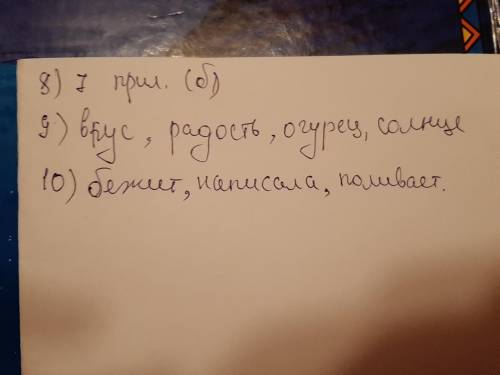 8) 7 прил. (б)
9) вкус, радость, огурец, солнце
10) бежит, написала, поливает.